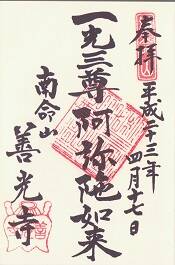 奉拝
平成二十三年
四月十七日
一光三尊阿弥陀如来
南命山
善光寺